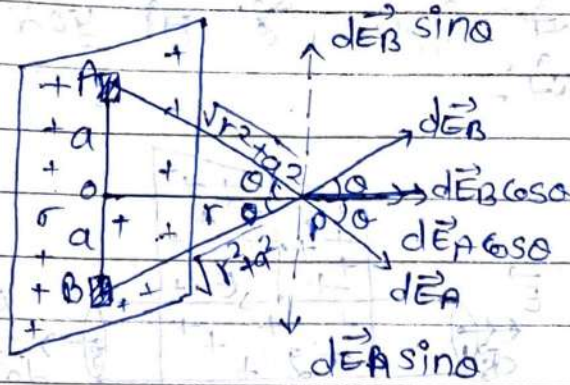 dE⃗B sinθ
+ A +
+ a + √r²+a² dE⃗B
+ θ θ
o r θ dE⃗B cosθ
σ a + + P θ dE⃗A cosθ
+ B + + √r²+a² dE⃗A
+
dE⃗A sinθ